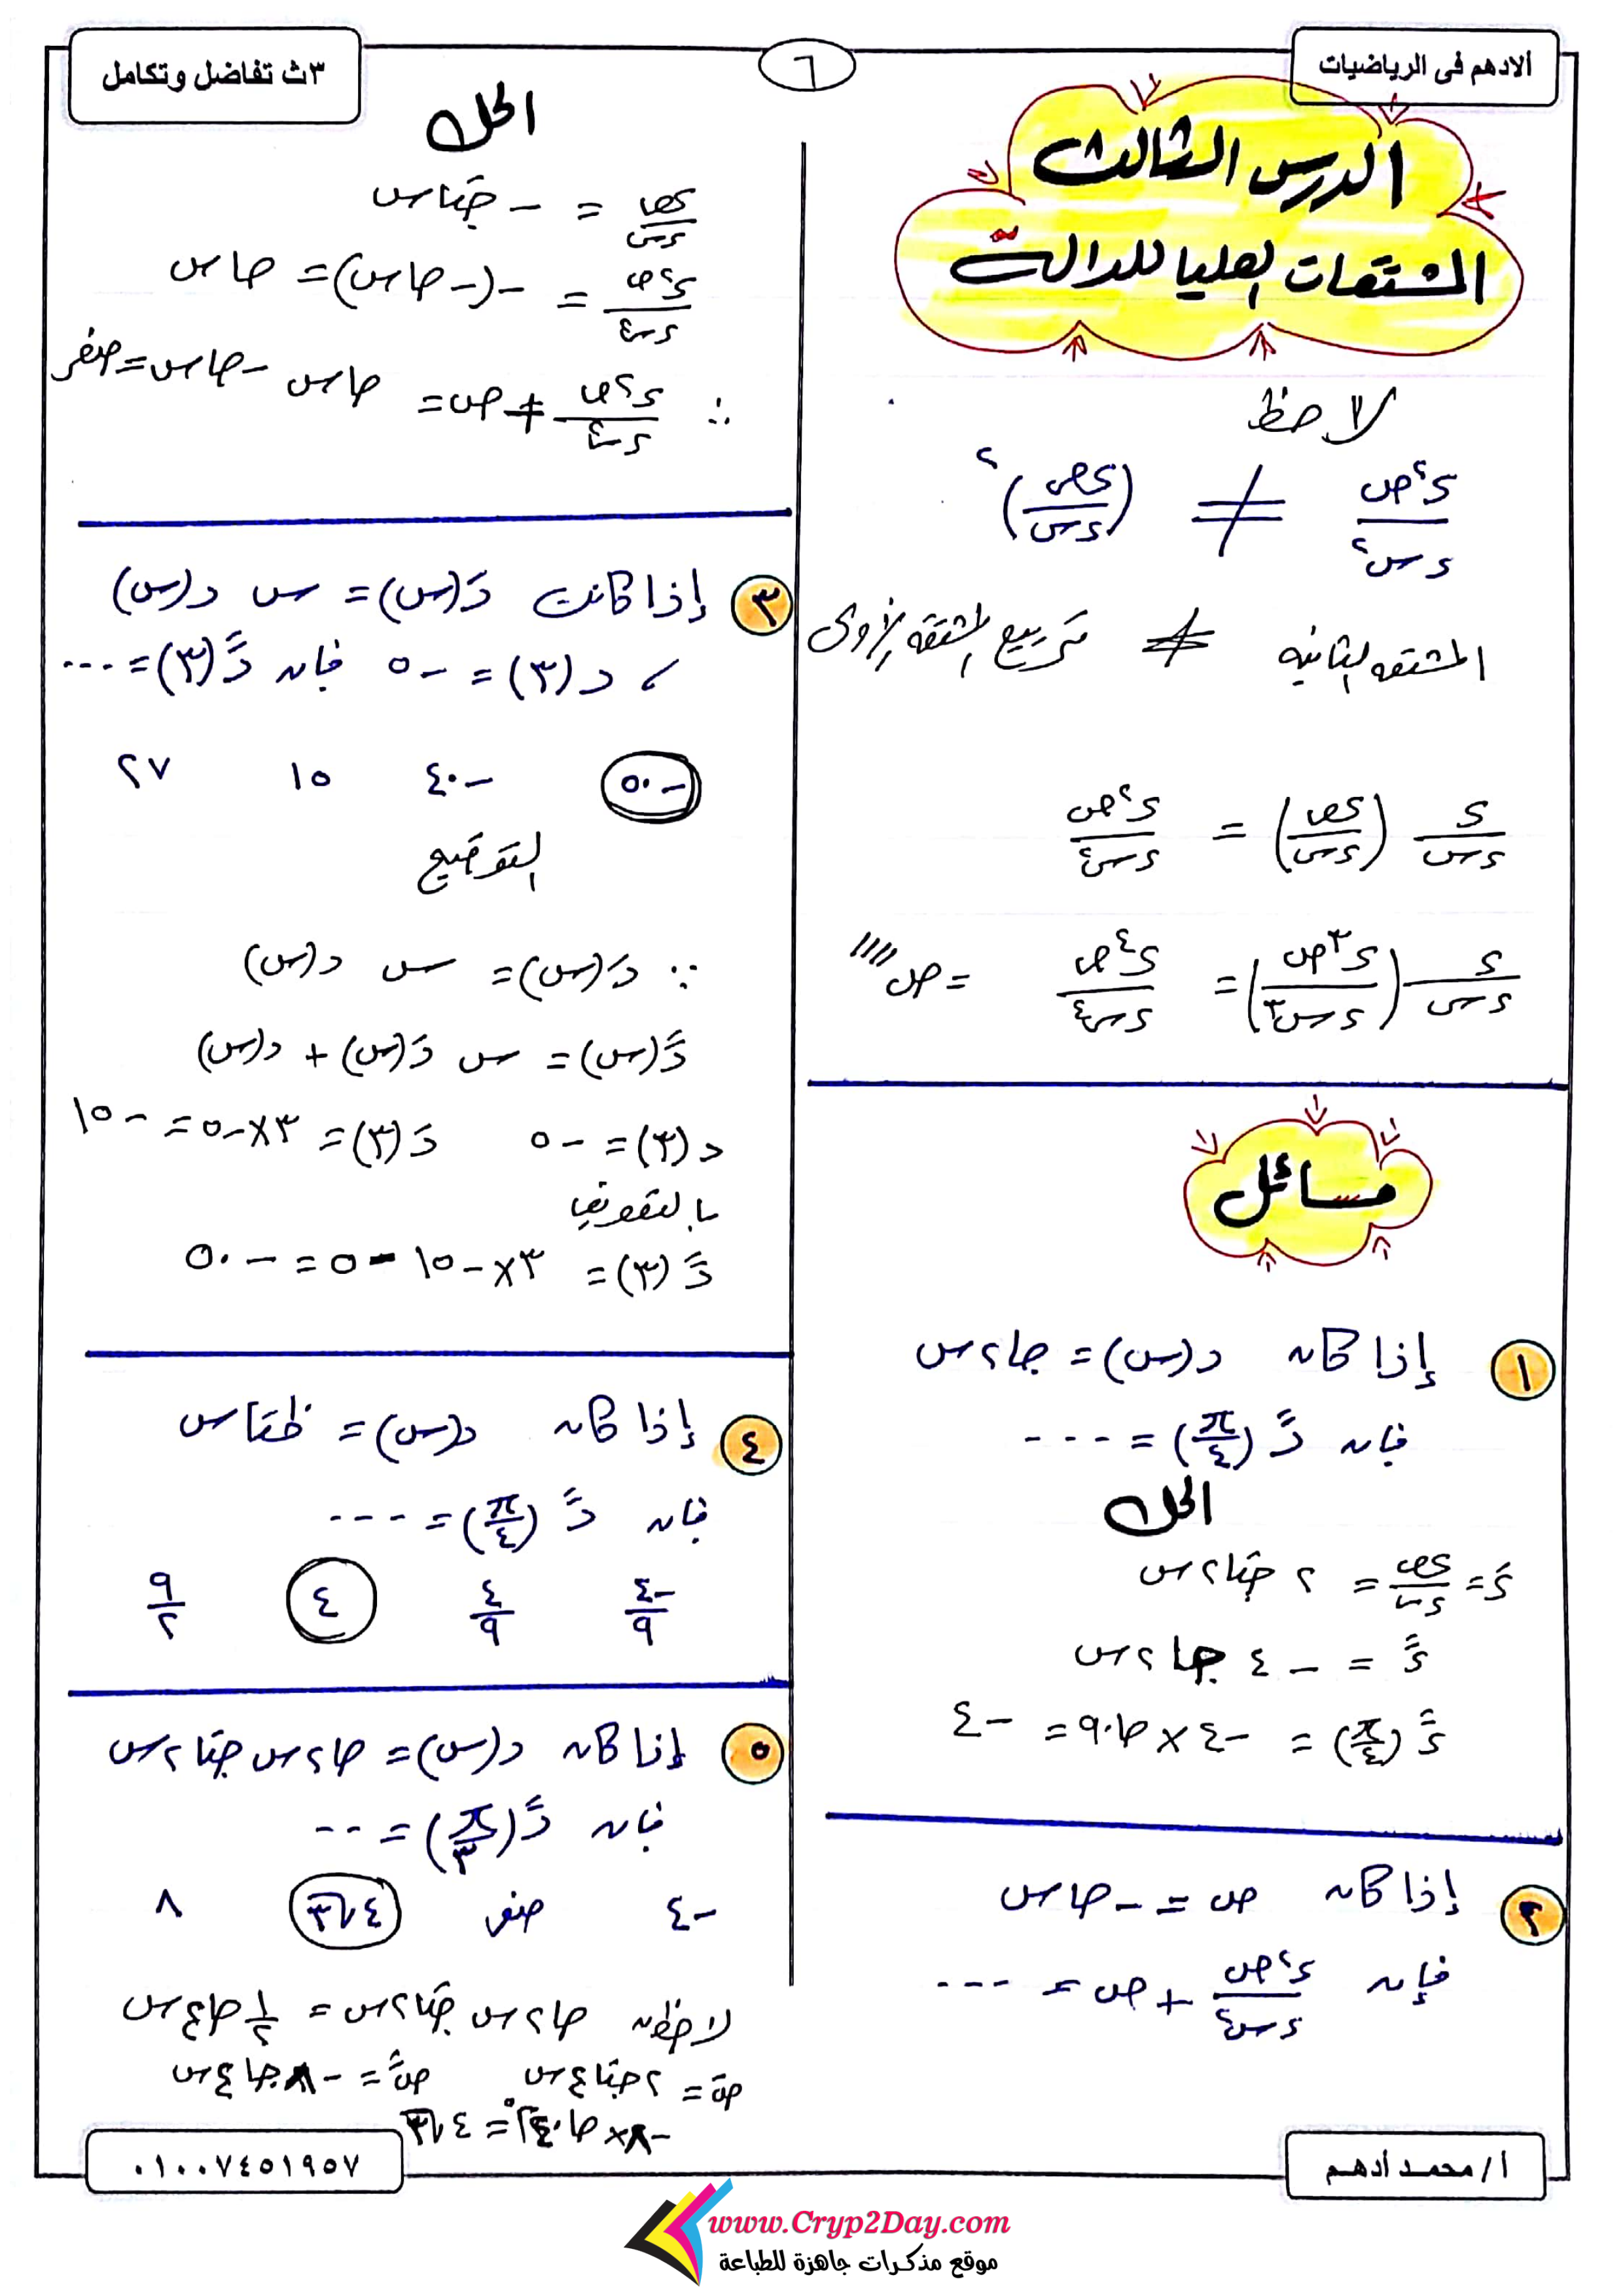 ألادهم فى الرياضيات
٦
٣ث تفاضل وتكامل
الدرس الثالث
المشتقات العليا للدالة
لاحظ
ء٢ص/ءس٢ ≠ (ءص/ءس)٢
المشتقه الثانيه ≠ تربيع المشتقه الأولى
ء/ءس (ءص/ءس) = ء٢ص/ءس٢
ء/ءس (ء٣ص/ءس٣) = ء٤ص/ءس٤ = ص////
مسائل
١ إذا كان د(س) = جا٢س
فإن دً(π/٤) = ---
الحل
دَ = ءص/ءس = ٢ جتا٢س
دً = -٤ جا٢س
دً(π/٤) = -٤ × جا٩٠ = -٤
٢ إذا كان ص = -حاس
فإن ء٢ص/ءس٢ + ص = ---
الحل
ءص/ءس = - جتاس
ء٢ص/ءس٢ = -(-حاس) = حاس
∴ ء٢ص/ءس٢ + ص = حاس - حاس = صفر
٣ إذا كانت دَ(س) = س د(س)
، د(٣) = -٥ فإن دً(٣) = ---
-٥٠ -٤٠ ١٥ ٢٧
التوضيح
∵ دَ(س) = س د(س)
دً(س) = س دَ(س) + د(س)
د(٣) = -٥ دَ(٣) = ٣×-٥ = -١٥
بالتعويض
دً(٣) = ٣×-١٥ -٥ = -٥٠
٤ إذا كان د(س) = ظتاس
فإن دً(π/٤) = ---
-٤/٩ ٤/٩ ٤ ٩/٢
٥ إذا كان د(س) = حا٢س جتا٢س
فإن دً(π/٣) = --
-٤ صفر ٤√٣ ٨
لاحظ أن حا٢س جتا٢س = ١/٢ حا٤س
صَ = ٢جتا٤س صً = -٨جا٤س
-٨×حا٢٤٠° = ٤√٣
أ/محمد أدهم
٠١٠٠٧٤٥١٩٥٧
www.Cryp2Day.com
موقع مذكرات جاهزة للطباعة